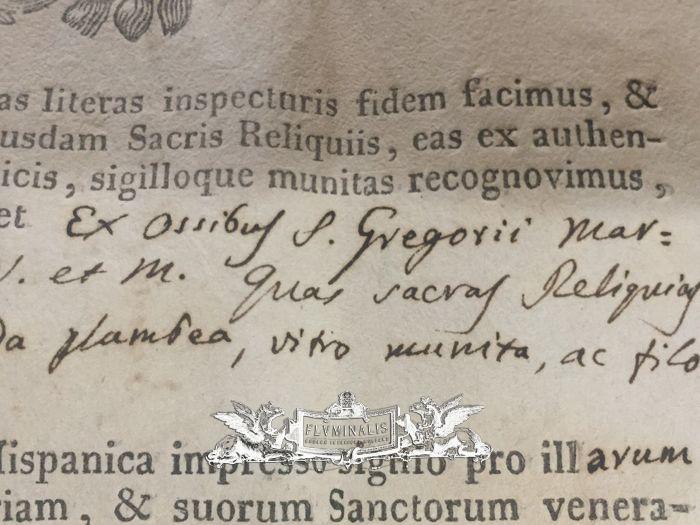 as literas inspecturis fidem facimus, &
usdam Sacris Reliquiis, eas ex authen-
icis, sigilloque munitas recognovimus,
et Ex Ossibus S. Gregorii Mar=
V. et M. Quas sacras Reliquias
da plumbea, vitro munita, ac filo
FLVMINALIS
Hispanica impresso signo pro illarum
riam, & suorum Sanctorum venera-